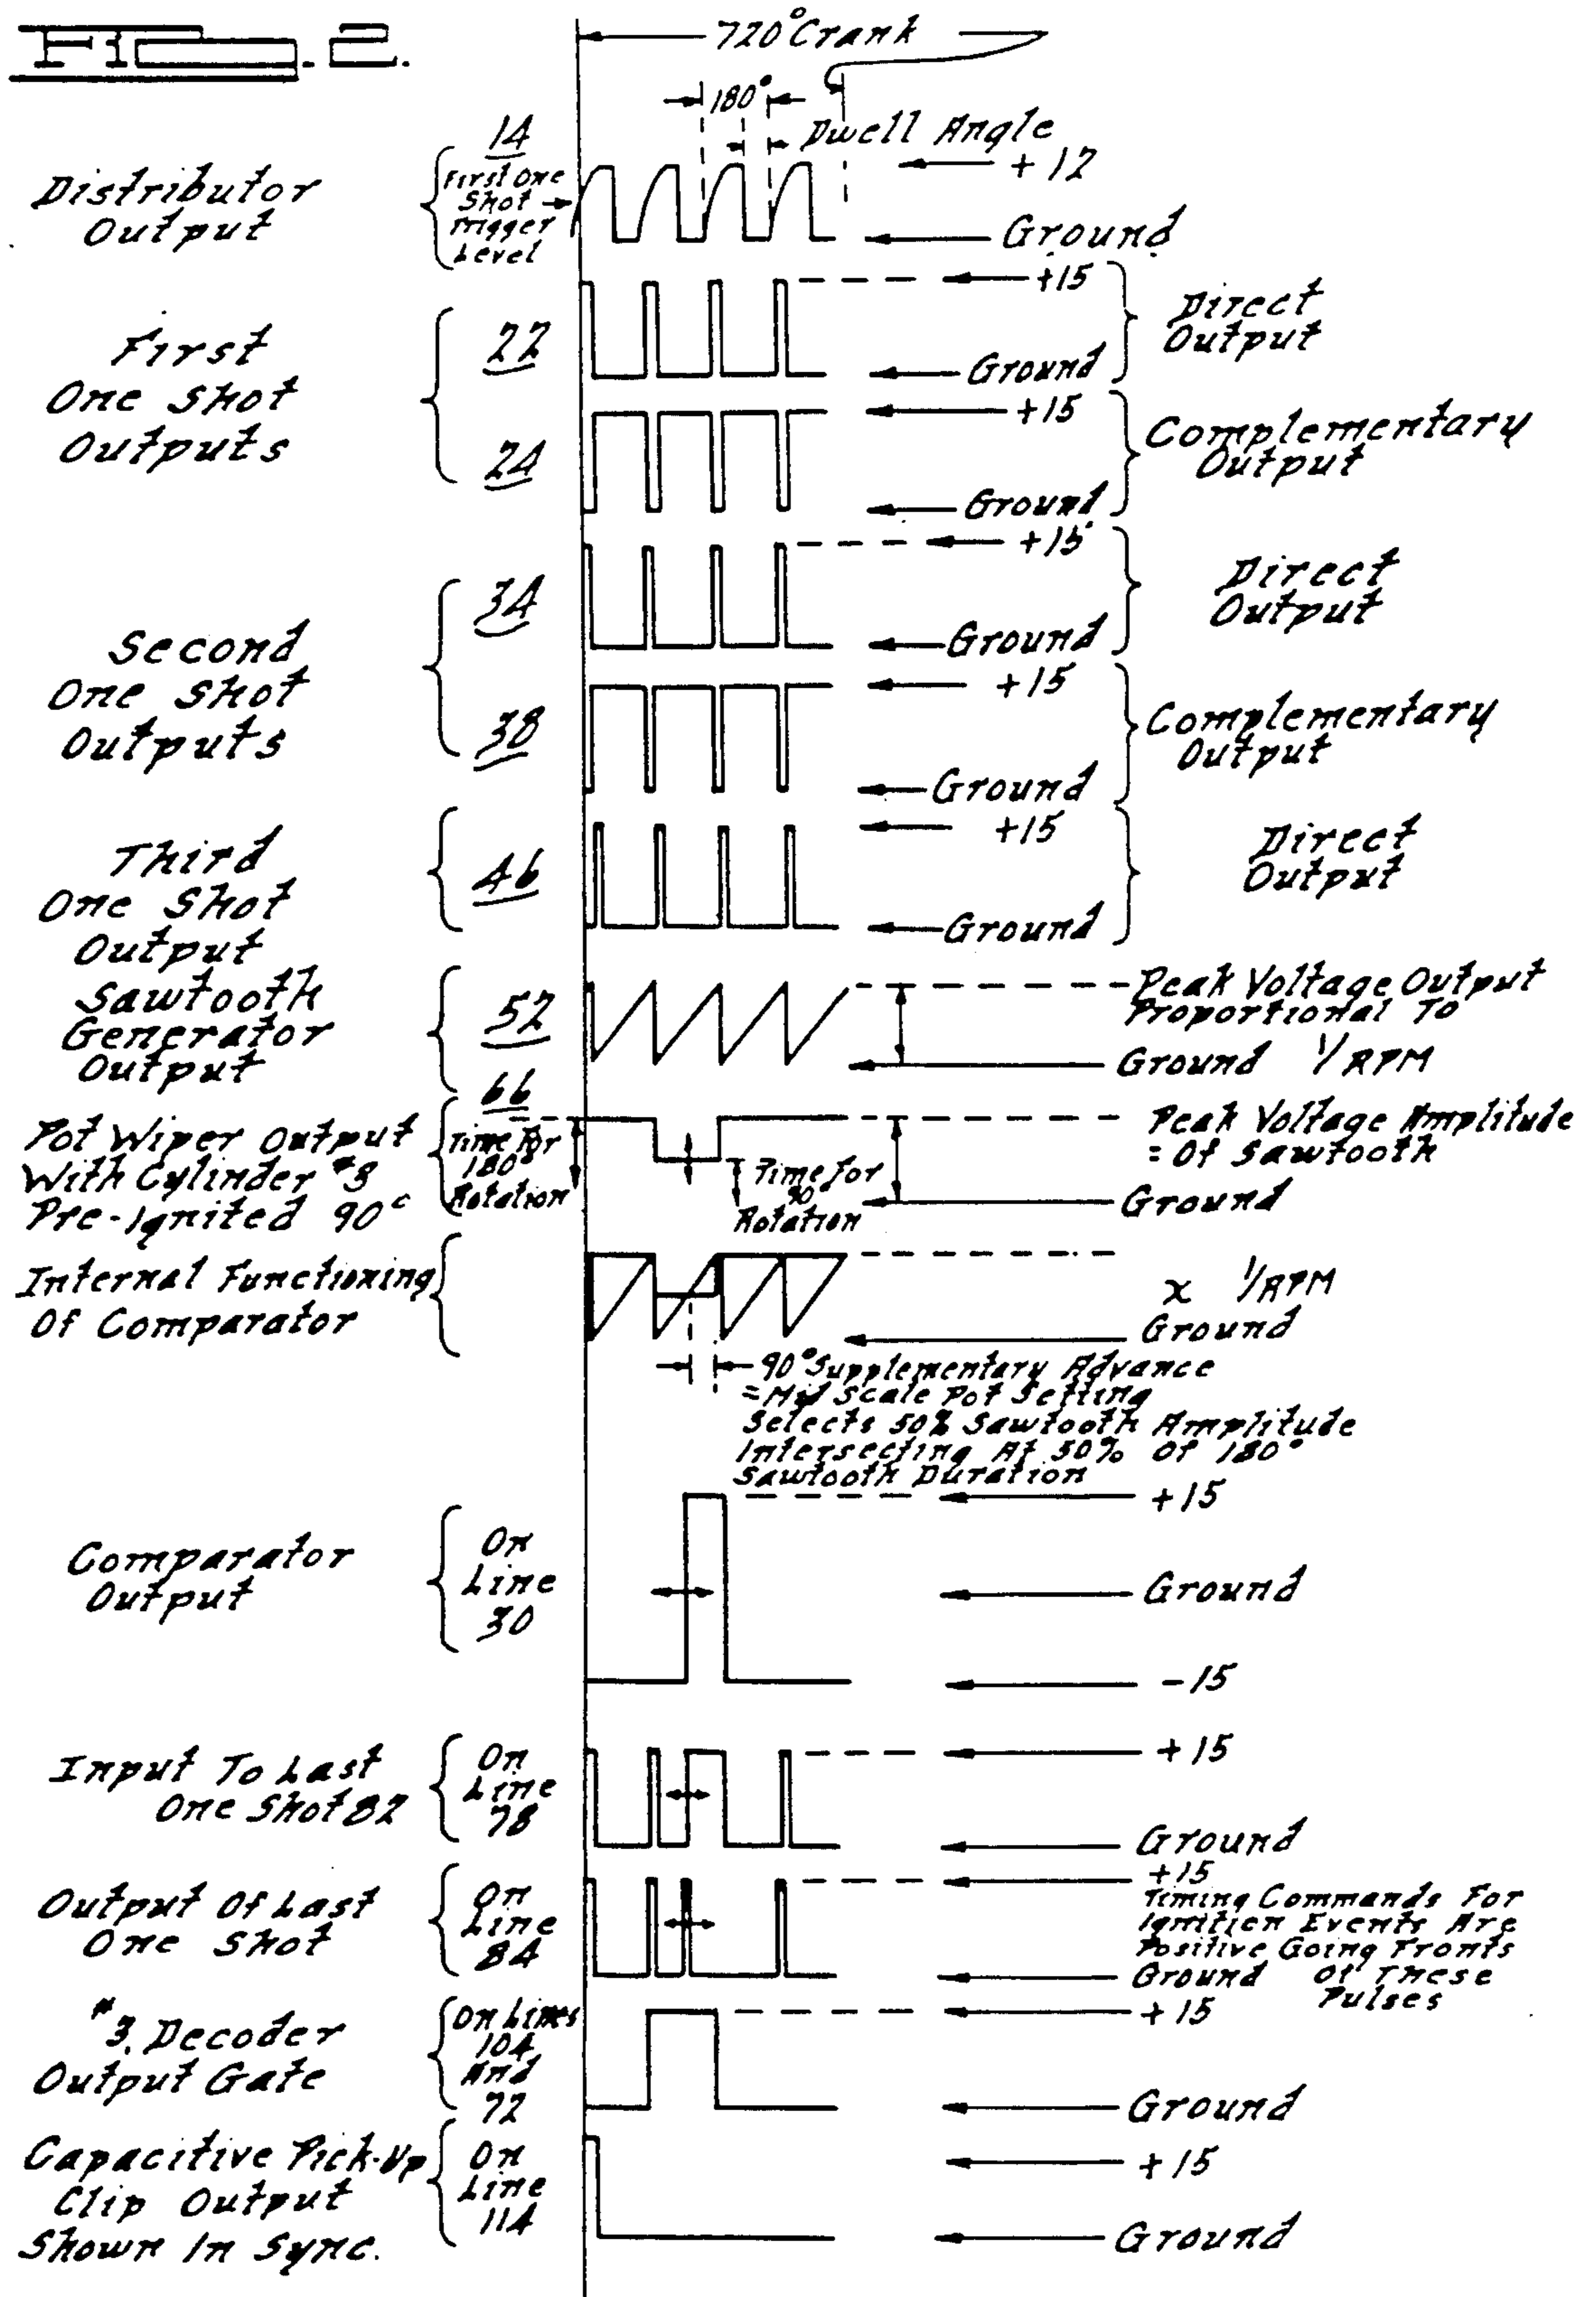 FIG. 2.
720° Crank
180°
Dwell Angle
14
First One
Shot
Trigger
Level
+12
Ground
Distributor
Output
First
One Shot
Outputs
22
+15
Ground
Direct
Output
24
+15
Ground
Complementary
Output
Second
One Shot
Outputs
34
+15
Ground
Direct
Output
38
+15
Ground
Complementary
Output
Third
One Shot
Output
46
+15
Ground
Direct
Output
Sawtooth
Generator
Output
52
Peak Voltage Output
Proportional To
Ground 1/RPM
66
Pot Wiper Output
With Cylinder #3
Pre-Ignited 90°
Time For
180°
Rotation
Time For
90°
Rotation
Peak Voltage Amplitude
= Of Sawtooth
Ground
Internal Functioning
Of Comparator
∝ 1/RPM
Ground
90° Supplementary Advance
= Mid Scale Pot Setting
Selects 50% Sawtooth Amplitude
Intersecting At 50% Of 180°
Sawtooth Duration
Comparator
Output
On
Line
30
+15
Ground
-15
Input To Last
One Shot 82
On
Line
78
+15
Ground
Output Of Last
One Shot
On
Line
84
+15
Timing Commands For
Ignition Events Are
Positive Going Fronts
Ground Of These
Pulses
#3. Decoder
Output Gate
On Lines
104
And
72
+15
Ground
Capacitive Pick-Up
Clip Output
Shown In Sync.
On
Line
114
+15
Ground